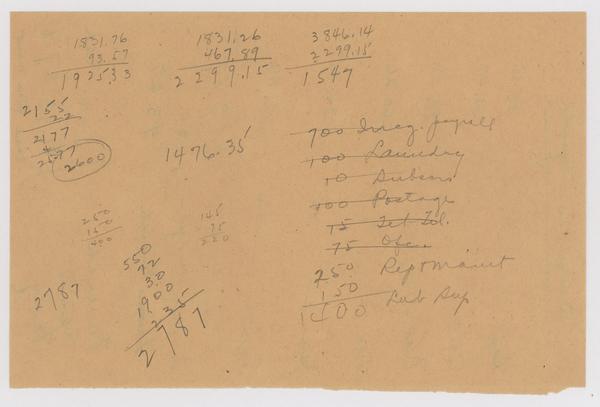 1831.76
93.57
1925.33
1831.26
467.89
2299.15
3846.14
2299.15
1547
2155
22
2177
4
2577
2600
1476.35
700 Irreg. payroll
100 Laundry
10 Subscns
100 Postage
15 Tel Tel.
75 Ofc
250 Rep & Maint
150 Lab Sup
1400
250
150
400
145
75
220
2787
550
72
30
1900
235
2787